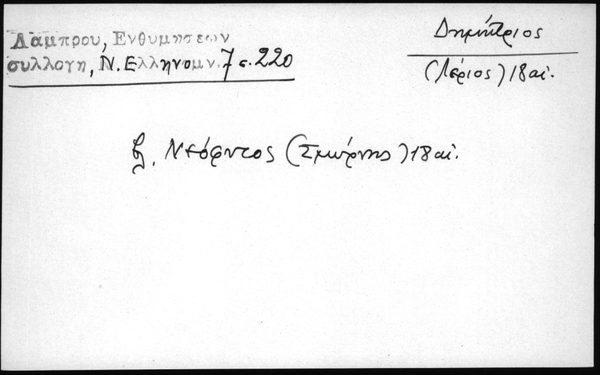 Λαμπρου, Ενθυμησεων
συλλογη, Ν. Ελληνομν. 7 σ. 220
Δημήτριος
(Λέριος) 18 αἰ.
βλ. Νεόφυτος (Σμύρνης) 18 αἰ.